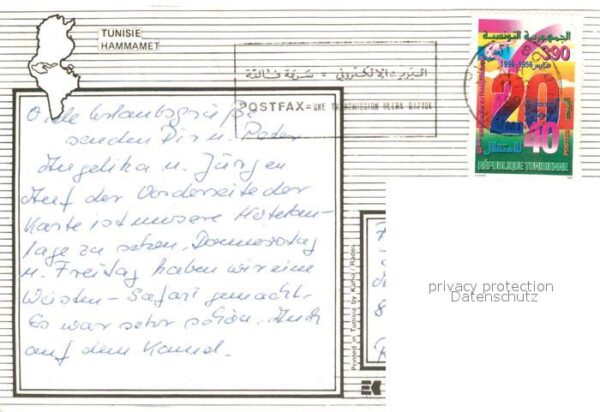 TUNISIE
HAMMAMET
البريد الإلكتروني = سرعة فائقة
POSTFAX = UNE TRANSMISSION ULTRA RAPIDE
الجمهورية التونسية
390
1996-1956 مارس
20
40
RÉPUBLIQUE TUNISIENNE
Viele Urlaubsgrüße
senden Dir u. Peter
Angelika u. Jürgen
Auf der Vorderseite der
Karte ist unsere Hotelan-
lage zu sehen. Donnerstag
u. Freitag haben wir eine
Wüsten-Safari gemacht.
Es war sehr schön. Auch
auf dem Kamel.
Printed in Tunisia by Kahia / Rades
privacy protection
Datenschutz